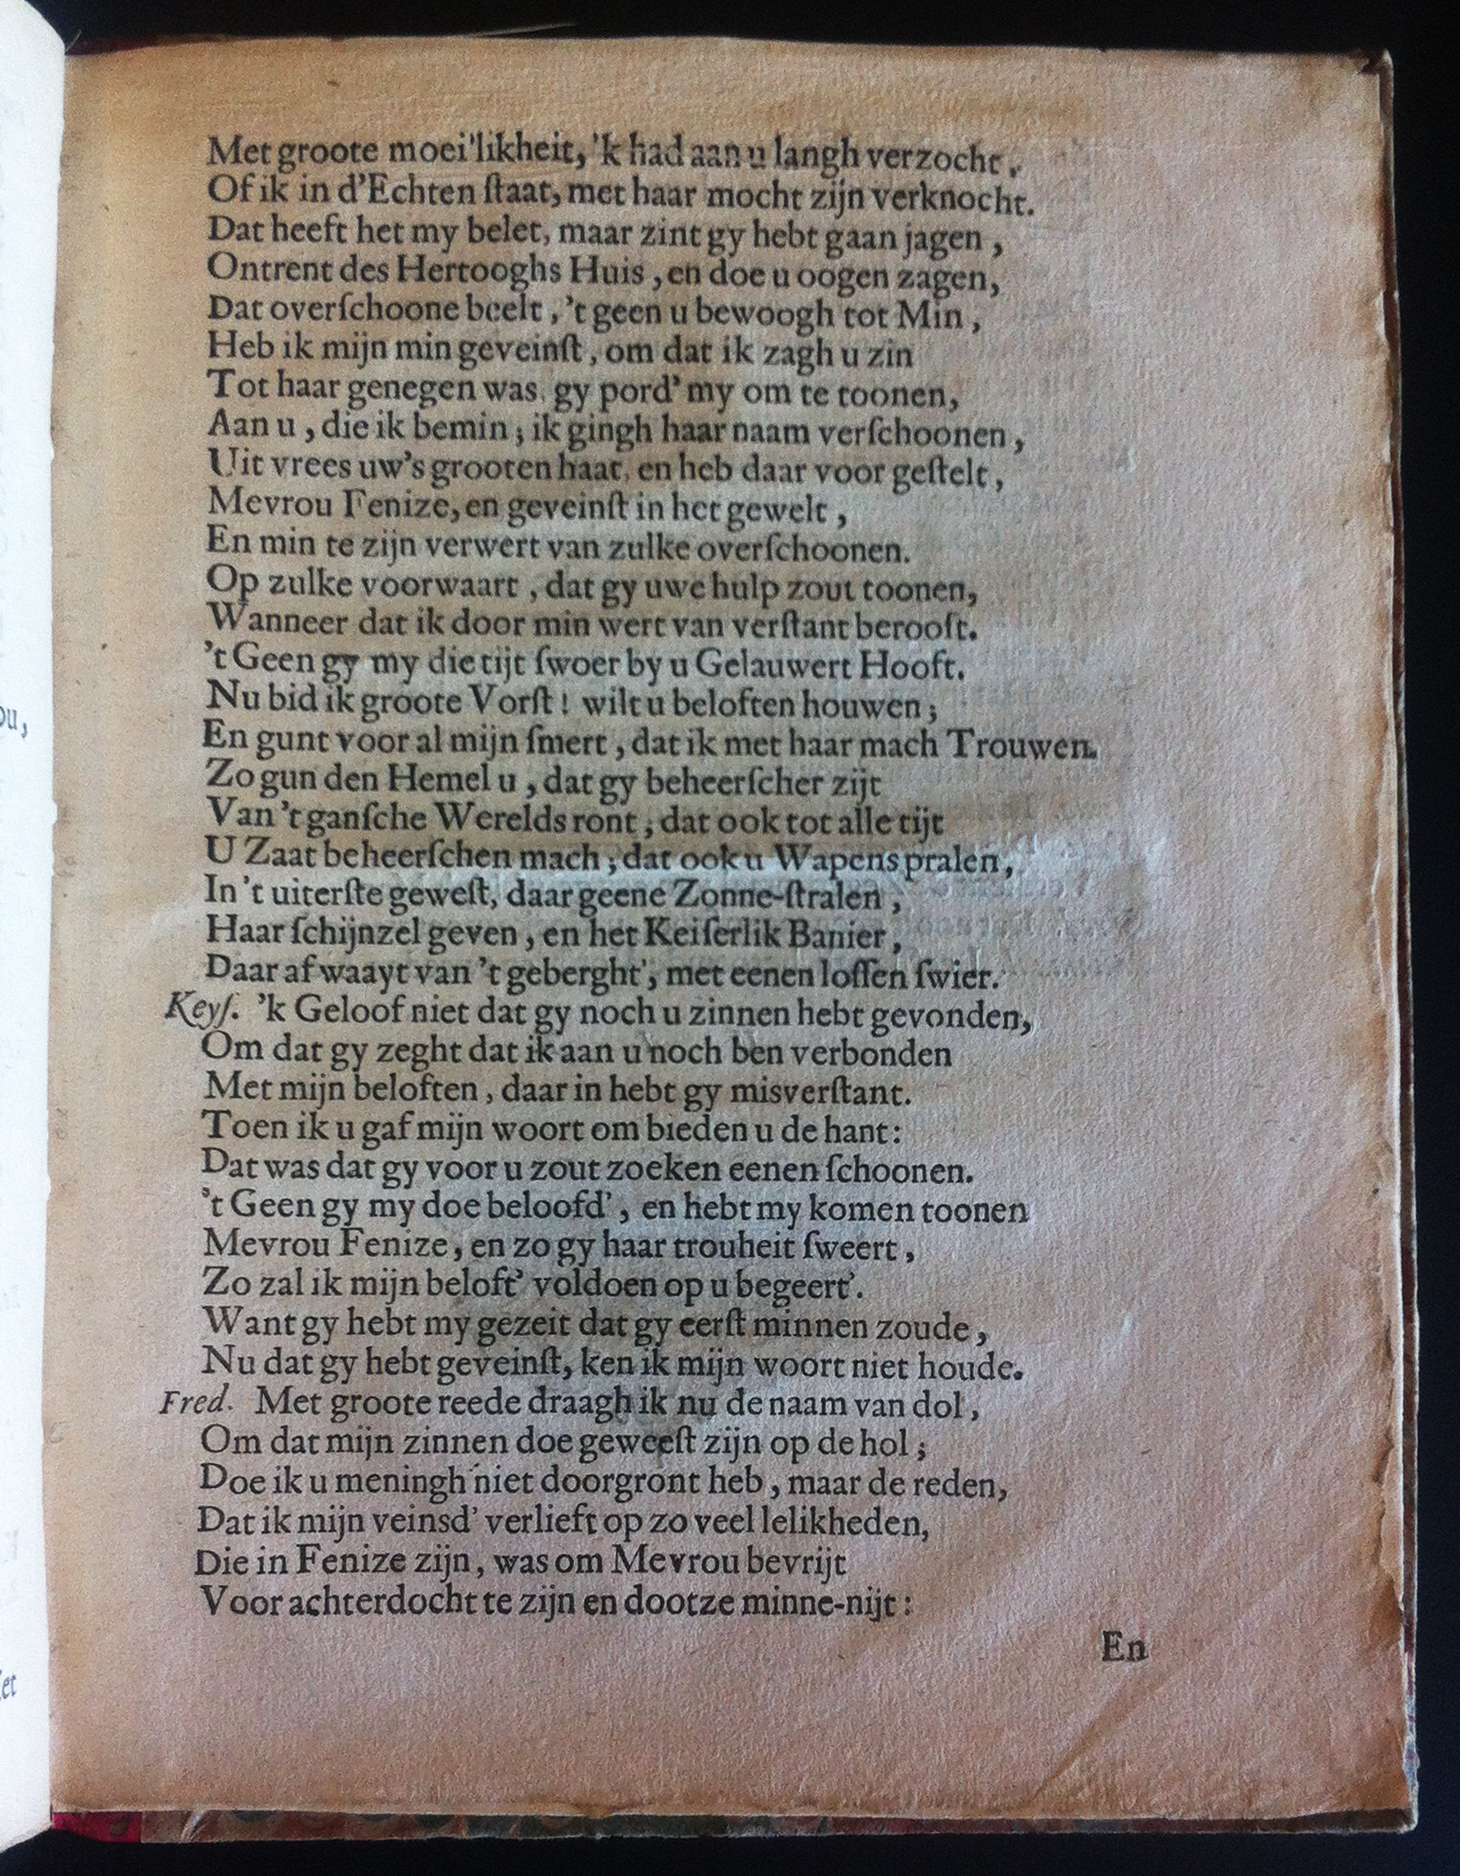 Met groote moei'likheit, 'k had aan u langh verzocht,
Of ik in d'Echten ſtaat, met haar mocht zijn verknocht.
Dat heeft het my belet, maar zint gy hebt gaan jagen,
Ontrent des Hertooghs Huis, en doe u oogen zagen,
Dat overſchoone beelt, 't geen u bewoogh tot Min,
Heb ik mijn min geveinſt, om dat ik zagh u zin
Tot haar genegen was, gy pord' my om te toonen,
Aan u, die ik bemin; ik gingh haar naam verſchoonen,
Uit vrees uw's grooten haat, en heb daar voor geſtelt,
Mevrou Fenize, en geveinſt in het gewelt,
En min te zijn verwert van zulke overſchoonen.
Op zulke voorwaart, dat gy uwe hulp zout toonen,
Wanneer dat ik door min wert van verſtant berooft.
't Geen gy my die tijt ſwoer by u Gelauwert Hooft.
Nu bid ik groote Vorſt! wilt u beloften houwen;
En gunt voor al mijn ſmert, dat ik met haar mach Trouwen.
Zo gun den Hemel u, dat gy beheerſcher zijt
Van 't ganſche Werelds ront, dat ook tot alle tijt
U Zaat beheerſchen mach, dat ook u Wapens pralen,
In 't uiterſte geweſt, daar geene Zonne-ſtralen,
Haar ſchijnzel geven, en het Keiſerlik Banier,
Daar af waayt van 't geberght', met eenen loſſen ſwier.
Keyſ. 'k Geloof niet dat gy noch u zinnen hebt gevonden,
Om dat gy zeght dat ik aan u noch ben verbonden
Met mijn beloften, daar in hebt gy misverſtant.
Toen ik u gaf mijn woort om bieden u de hant:
Dat was dat gy voor u zout zoeken eenen ſchoonen.
't Geen gy my doe beloofd', en hebt my komen toonen
Mevrou Fenize, en zo gy haar trouheit ſweert,
Zo zal ik mijn beloft' voldoen op u begeert'.
Want gy hebt my gezeit dat gy eerſt minnen zoude,
Nu dat gy hebt geveinſt, ken ik mijn woort niet houde.
Fred. Met groote reede draagh ik nu de naam van dol,
Om dat mijn zinnen doe geweeſt zijn op de hol;
Doe ik u meningh niet doorgront heb, maar de reden,
Dat ik mijn veinsd' verlieft op zo veel lelikheden,
Die in Fenize zijn, was om Mevrou bevrijt
Voor achterdocht te zijn en dootze minne-nijt:
En
ou,
et